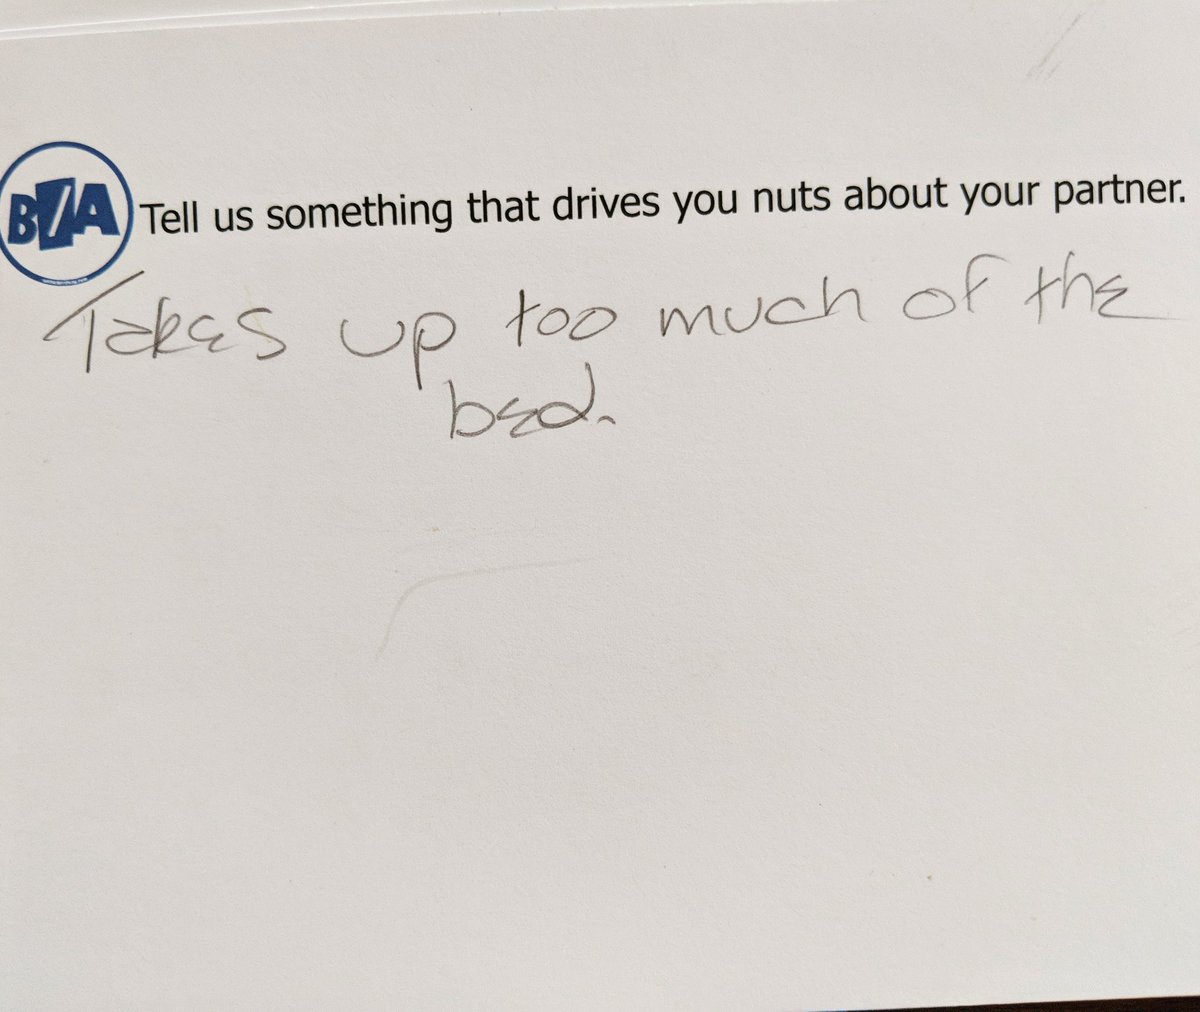 BZA Tell us something that drives you nuts about your partner.
Takes up too much of the
bed.